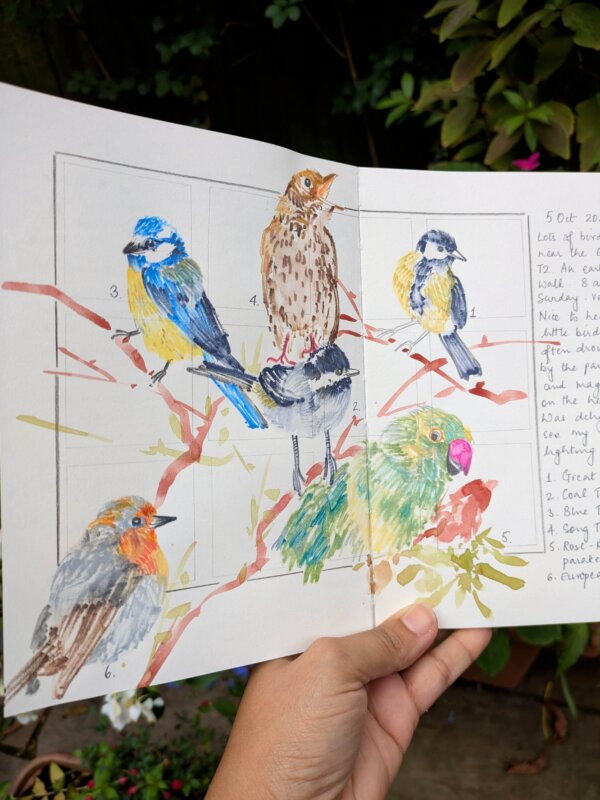 3.
4.
1
2.
5.
6.
5 Oct 20
Lots of bird
near the
T2. An ea
Walk. 8 a
Sunday.
Nice to he
little bird
often drow
by the par
and mag
on the h
Was deli
see my
lighting
1. Great
2. Coal T
3. Blue T
4. Song T
5. Rose-R
parake
6. Europe